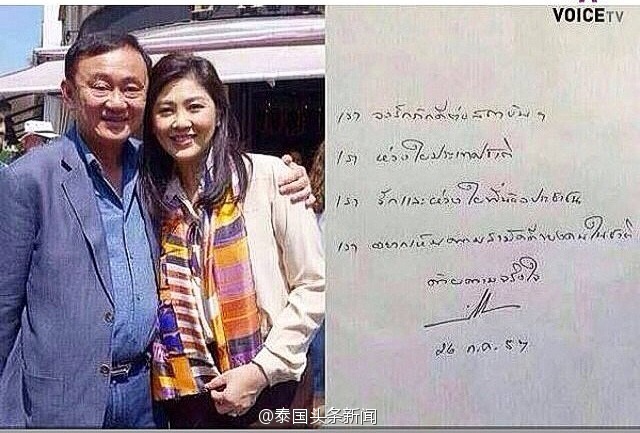 VOICE TV
เรา จงรักภักดีต่อสถาบัน ฯ
เรา ห่วงใยประเทศชาติ
เรา รักและห่วงใยพี่น้องประชาชน
เรา อยากเห็นความสามัคคีของคนในชาติ
ด้วยความจริงใจ
26 ก.ค. 57
@泰国头条新闻